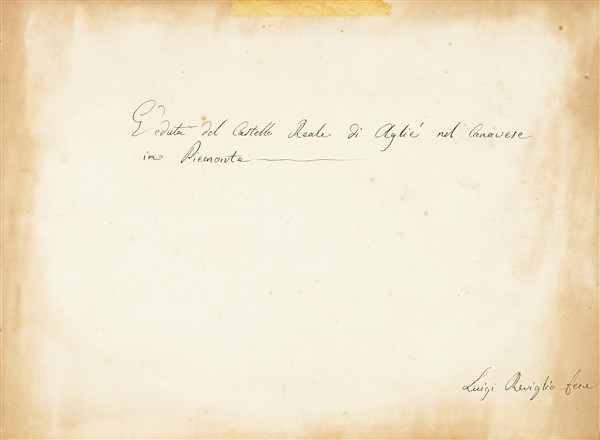 Veduta del Castello Reale di Agliè nel Canavese
in Piemonte
Luigi Reviglio fece